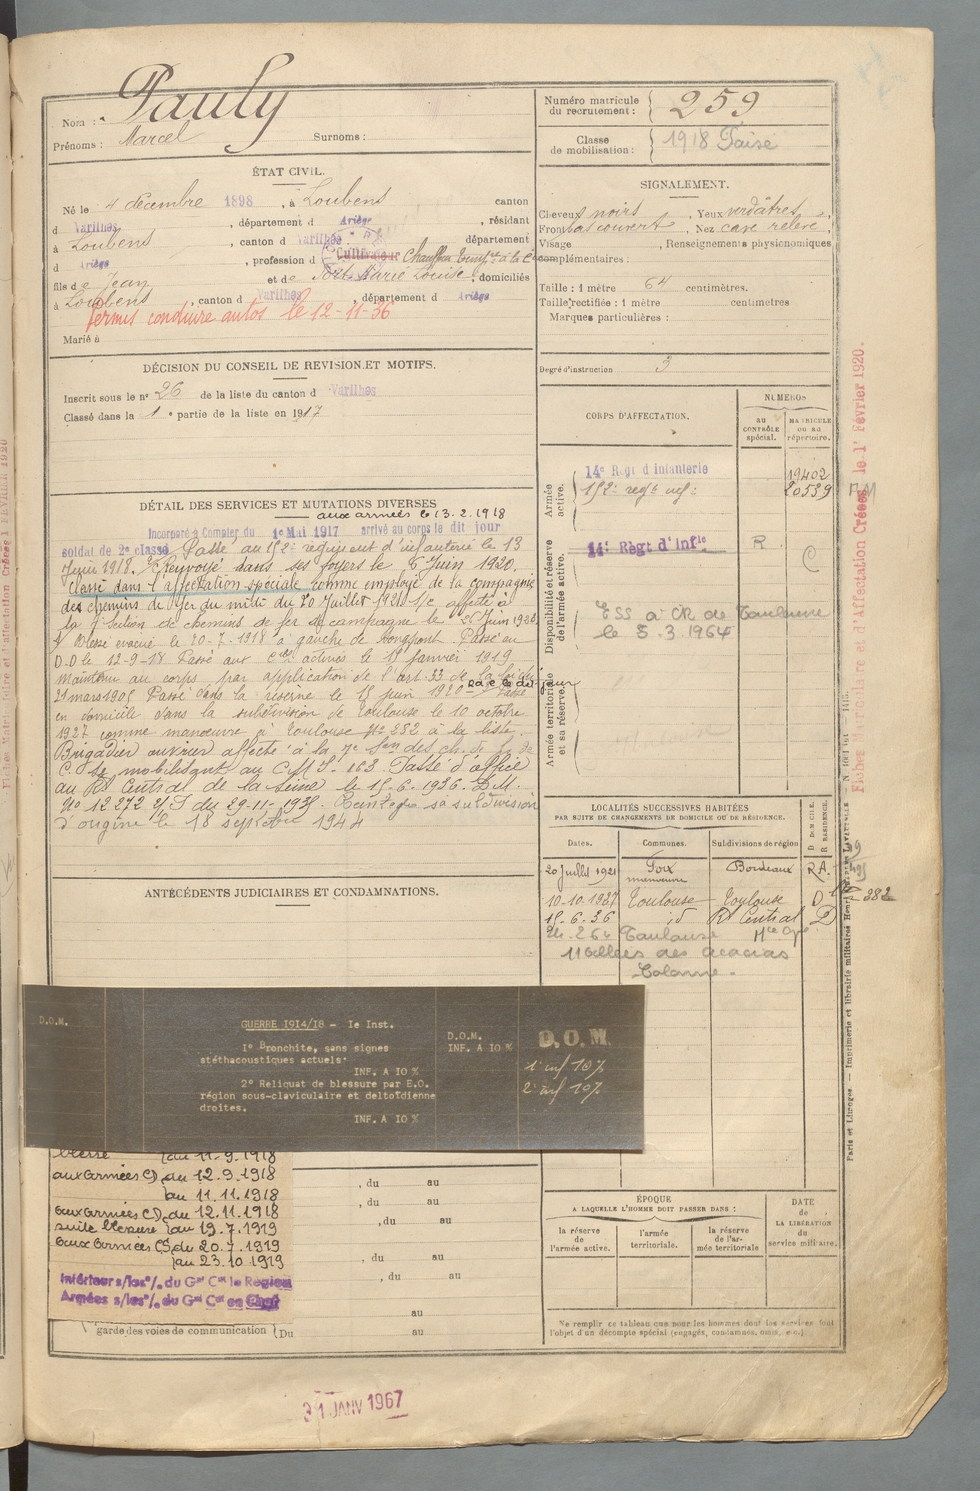 Nom : Pauly
Prénoms : Marcel Surnoms :
Numéro matricule du recrutement : 259
Classe de mobilisation : 1918
ÉTAT CIVIL.
Né le 4 décembre 1898, à Loubens canton
d Varilhes, département d Ariège, résidant
à Loubens, canton d Varilhes département
d Ariège, profession d Cultivateur Chauffeur
fils de Jean et de Marie Louise, domiciliés
à Loubens, canton d Varilhes, département d Ariège
Permis conduire autos le 12-11-36
Marié à
SIGNALEMENT.
Cheveux noirs, Yeux verdâtres,
Front bas couvert, Nez cave relevé,
Visage , Renseignements physionomiques
complémentaires :
Taille : 1 mètre 64 centimètres.
Taille rectifiée : 1 mètre centimètres
Marques particulières :
Degré d'instruction 3
DÉCISION DU CONSEIL DE REVISION ET MOTIFS.
Inscrit sous le nº 26 de la liste du canton d Varilhes
Classé dans la 1e partie de la liste en 1917
DÉTAIL DES SERVICES ET MUTATIONS DIVERSES
aux armées le 13.2.1918
Incorporé à Compter du 1er Mai 1917 arrivé au corps le dit jour
soldat de 2e classe Passé au 152e régiment d'infanterie le 13
Juin 1918. Renvoyé dans ses foyers le 6 Juin 1920.
Classé dans l'affectation spéciale comme employé de la compagnie
des chemins de fer du midi du 20 Juillet 1921 affecté à
la 7e Section de chemins de fer de campagne le 26 Juin
Blessé évacué le 20-7-1918 à gauche de Longpont. Passé au
D.D le 12-9-18 Passé aux activés le 15 Janvier 1919
Maintenu au corps par application de l'art 33 de la loi du
21 mars 1905 Passé dans la réserve le 15 juin 1920
en domicile dans la subdivision de Toulouse le 10 octobre
1927 comme manœuvre à Toulouse
Brigadier ouvrier affecté à la 7e Son des ch. de fer de
C. Se mobilisant au C.M.S. 163. Passé d'office
au Rt Central de la Seine le 15.6.1936. D.M.
Nº 12272 du 29-11-1935. Réintégré sa subdivision
d'origine le 18 septembre 1944
ANTÉCÉDENTS JUDICIAIRES ET CONDAMNATIONS.
CORPS D'AFFECTATION.
NUMÉROS
AU CONTRÔLE spécial.
MATRICULE ou au répertoire.
Armée active.
14e Régt d'Infanterie 19402
152e regt inf. 20539
Disponibilité et réserve de l'armée active.
14e Régt d'Infie R
ESS à CR de Toulouse
le 5.3.1964
Armée territoriale et sa réserve.
LOCALITÉS SUCCESSIVES HABITÉES
PAR SUITE DE CHANGEMENTS DE DOMICILE OU DE RÉSIDENCE.
Dates. Communes. Subdivisions de région D DOMICILE. R RÉSIDENCE.
20 juillet 1921 Foix Bordeaux R.A.
manœuvre
10-10-1927 Toulouse Toulouse D
15-6-36 id Rt Central D
24.2.64 Toulouse Hte Gne
11 allées des Acacias
Colomiers
D.O.M.
GUERRE 1914/18 - 1e Inst.
1º Bronchite, sans signes
stéthacoustiques actuels.
INF. A 10 %
2º Reliquat de blessure par E.O.
région sous-claviculaire et deltoïdienne
droites.
INF. A 10 %
D.O.M.
INF. A 10 %
D.O.M.
1º inf 10%
2º inf 10%
blessé au 11.9.1918
aux Armées CD du 12.9.1918
au 11.11.1918
aux Armées CD du 12.11.1918
suite blessure au 19.7.1919
aux Armées CS du 20.7.1919
au 23.10.1919
Intérieur s/les o/. du Gal Ct la Région
Armées s/les o/. du Gal Ct en Chef
garde des voies de communication Du
, du au
, du au
, du au
, du au
, du au
au
au
ÉPOQUE
A LAQUELLE L'HOMME DOIT PASSER DANS :
la réserve de l'armée active.
l'armée territoriale.
la réserve de l'armée territoriale
DATE de LA LIBÉRATION du service militaire.
Ne remplir ce tableau que pour les hommes dont les services font
l'objet d'un décompte spécial (engagés, condamnés, omis, etc.)
31 JANV 1967
Fiches Matriculaire et d'Affectation Créées le 1er Février 1920.
Paris et Limoges. — Imprimerie et librairie militaires Henri CHARLES-LAVAUZELLE.